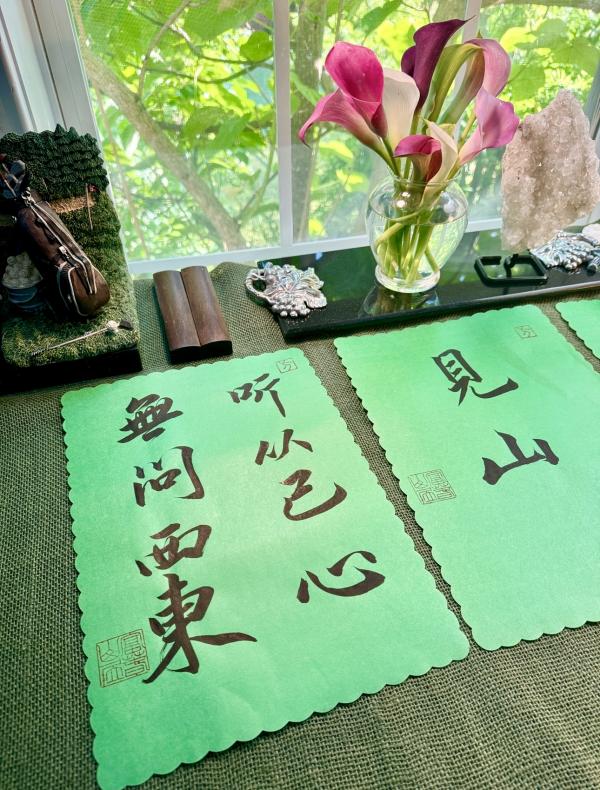 听从己心
無問西東
見山